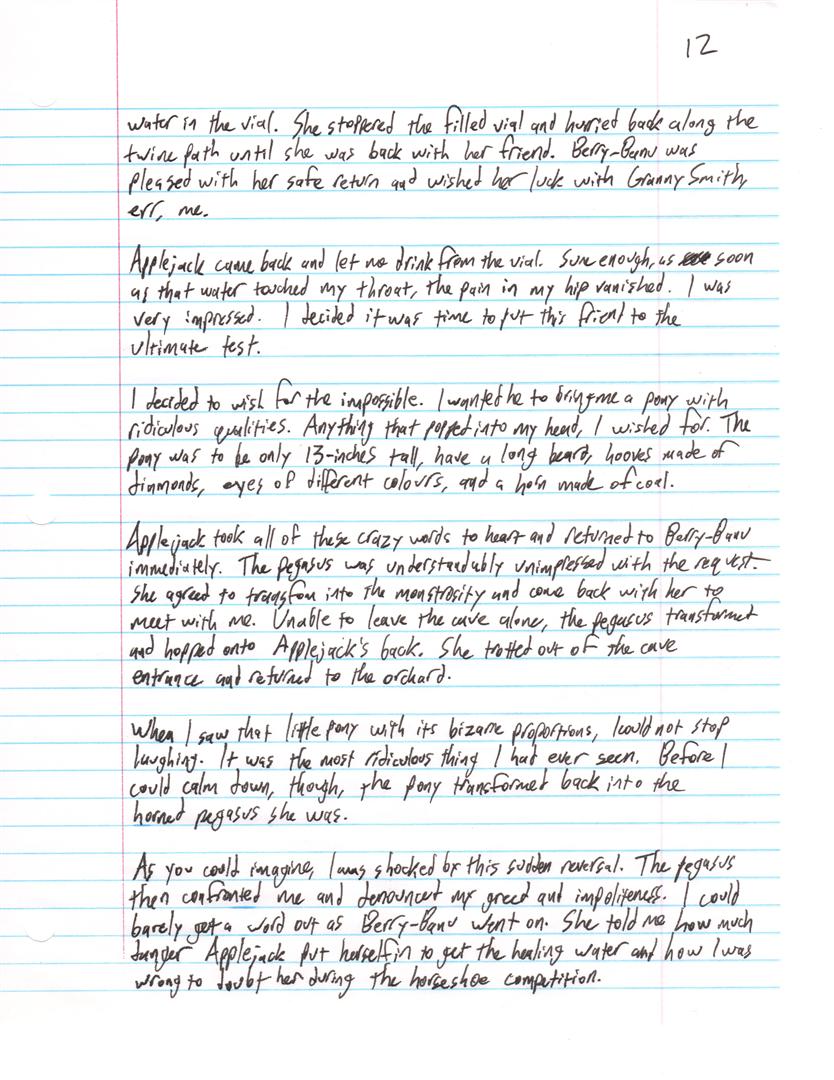 12
water in the vial. She stoppered the filled vial and hurried back along the
twine path until she was back with her friend. Berry-Banu was
pleased with her safe return and wished her luck with Granny Smith,
err, me.
Applejack came back and let me drink from the vial. Sure enough, as soon
as that water touched my throat, the pain in my hip vanished. I was
very impressed. I decided it was time to put this friend to the
ultimate test.
I decided to wish for the impossible. I wanted he to bring me a pony with
ridiculous qualities. Anything that popped into my head, I wished for. The
pony was to be only 13-inches tall, have a long beard, hooves made of
diamonds, eyes of different colours, and a horn made of coal.
Applejack took all of these crazy words to heart and returned to Berry-Banu
immediately. The pegasus was understandably unimpressed with the request.
She agreed to transfom into the monstrosity and come back with her to
meet with me. Unable to leave the cave alone, the pegasus transformed
and hopped onto Applejack's back. She trotted out of the cave
entrance and returned to the orchard.
When I saw that little pony with its bizarre proportions, I could not stop
laughing. It was the most ridiculous thing I had ever seen. Before I
could calm down, though, the pony transformed back into the
horned pegasus she was.
As you could imagine, I was shocked by this sudden reversal. The pegasus
then confronted me and denounced my greed and impoliteness. I could
barely get a word out as Berry-Banu went on. She told me how much
danger Applejack put herself in to get the healing water and how I was
wrong to doubt her during the horseshoe competition.